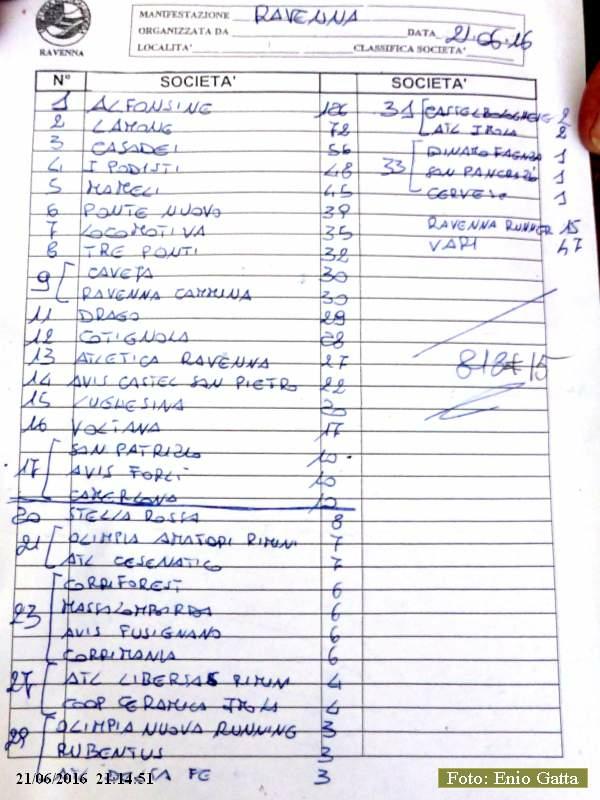 RAVENNA
MANIFESTAZIONE RAVENNA
ORGANIZZATA DA DATA 21.06.16
LOCALITA' CLASSIFICA SOCIETA'
N° SOCIETA' SOCIETA'
1 ALFONSINE 126
2 LAMONE 72
3 CASADEI 56
4 I PODISTI 48
5 MAMELI 45
6 PONTE NUOVO 39
7 LOCOMOTIVA 35
8 TRE PONTI 32
9 CAVEJA 30
RAVENNA CAMMINA 30
11 DRAGO 29
12 COTIGNOLA 28
13 ATLETICA RAVENNA 27
14 AVIS CASTEL SAN PIETRO 22
15 LUGHESINA 20
16 VOLTANA 17
17 SAN PATRIZIO 10
AVIS FORLI' 10
CAMERLONA 10
20 STELLA ROSSA 8
21 OLIMPIA AMATORI RIMINI 7
ATL CESENATICO 7
23 CORRIFOREST 6
MASSALOMBARDA 6
AVIS FUSIGNANO 6
CORRIMANIA 6
27 ATL LIBERTAS RIMINI 4
COOP CERAMICA IMOLA 4
29 OLIMPIA NUOVA RUNNING 3
RUBENTUS 3
ATL FE 3
31 CASTELBOLOGNESE 2
ATL IMOLA 2
33 DINAMO FAENZA 1
SAN PANCRAZIO 1
CERVESE 1
RAVENNA RUNNER 15
VARI 47
818+15
21/06/2016 21:14:51
Foto: Enio Gatta